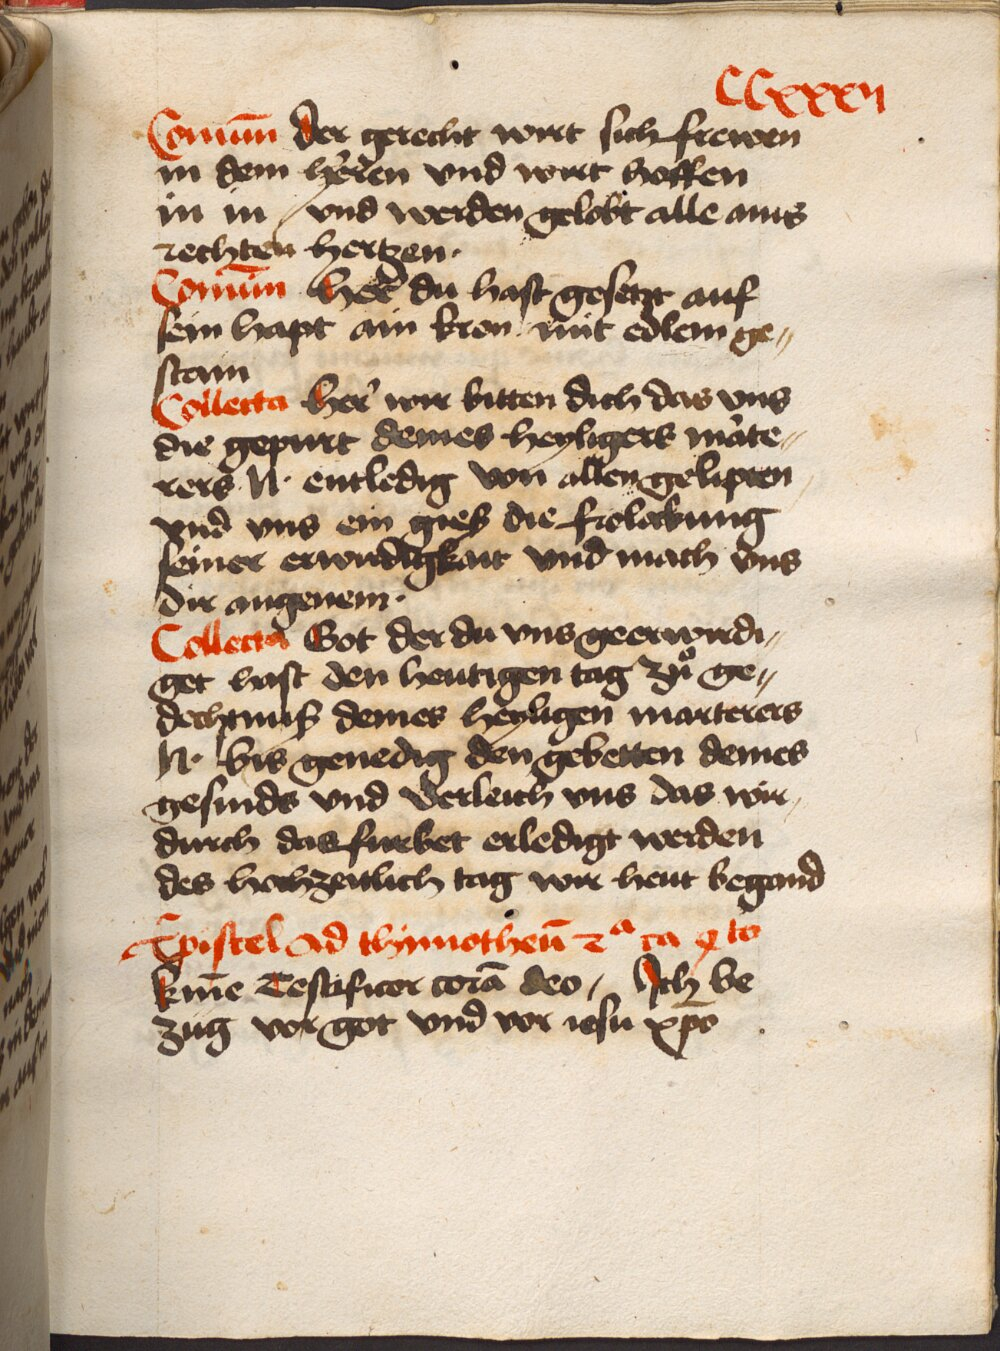 CCxxxij
Comum̄ Der gerecht wirt sich frewen
in dem heren vnd wirt hoffen
in in / vnd werden gelobt alle ains
rechten hertzen.
Comum̄ Her du hast gesetzt auf
sein hapt ain kron mit edlem ge〃
stain
Collecta Her wir bitten dich das vns
die gepurt deines heyligers māte〃
rers N. entledig von allen gelipten
vnd vns ein gieß die frolockung
seiner erwirdigkait vnd mach vns
dir angenem.
Collecta Got der du vns geerwirdi〃
get hast den heutigen tag zuͦ ge〃
dechtnuß deines heyligen marterers
N. bis genedig den gebetten deines
gesinds vnd verleich vns das wir
durch das furbet erledigt werden
des hochzeitlich tag wir heut begand
Epistel Ad thymotheū 2ª ca q̄to
kme Testificor corā deo / Ich be
zug vor got vnd vor iesu xp̄o